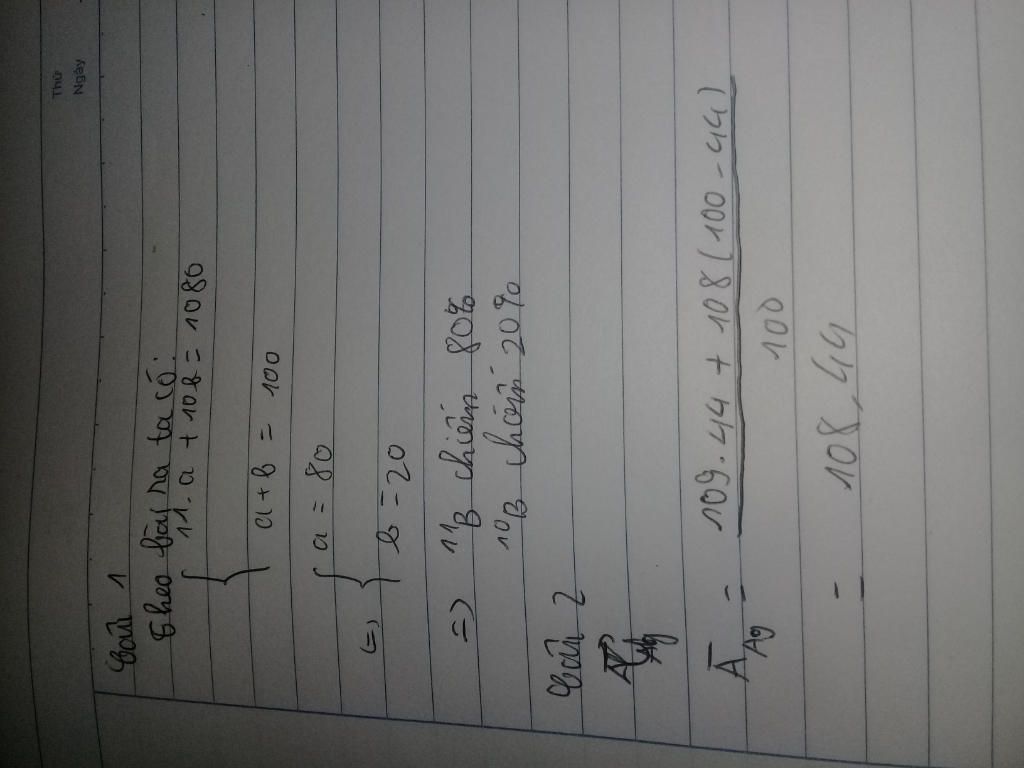 Thứ
Ngày
Bài 1
Theo bài ra ta có:
{ 11.a + 10b = 1080
a + b = 100
(=) { a = 80
b = 20
=) ¹¹B chiếm 80%
¹⁰B chiếm 20%
Bài 2
A̅Ag = 109.44 + 108(100-44)
100
= 108,44